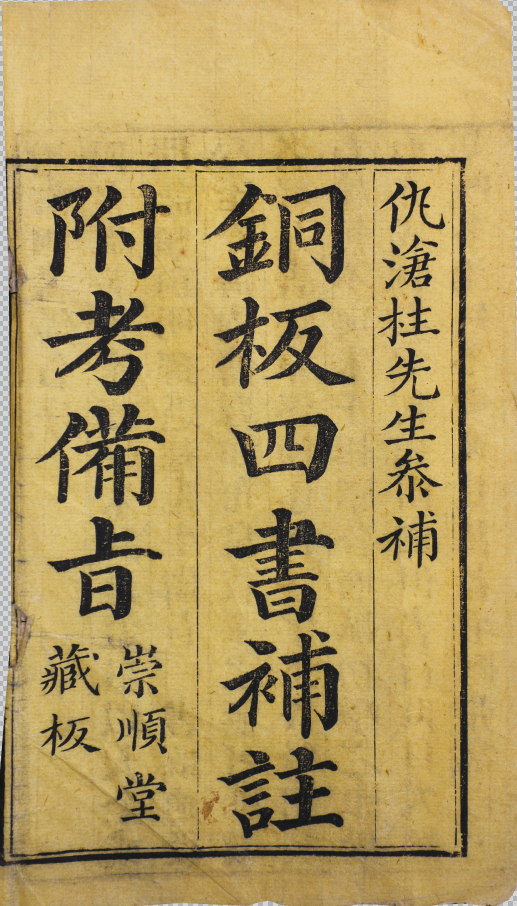 仇滄柱先生参補
銅板四書補註
附考備㫖
崇順堂
藏板